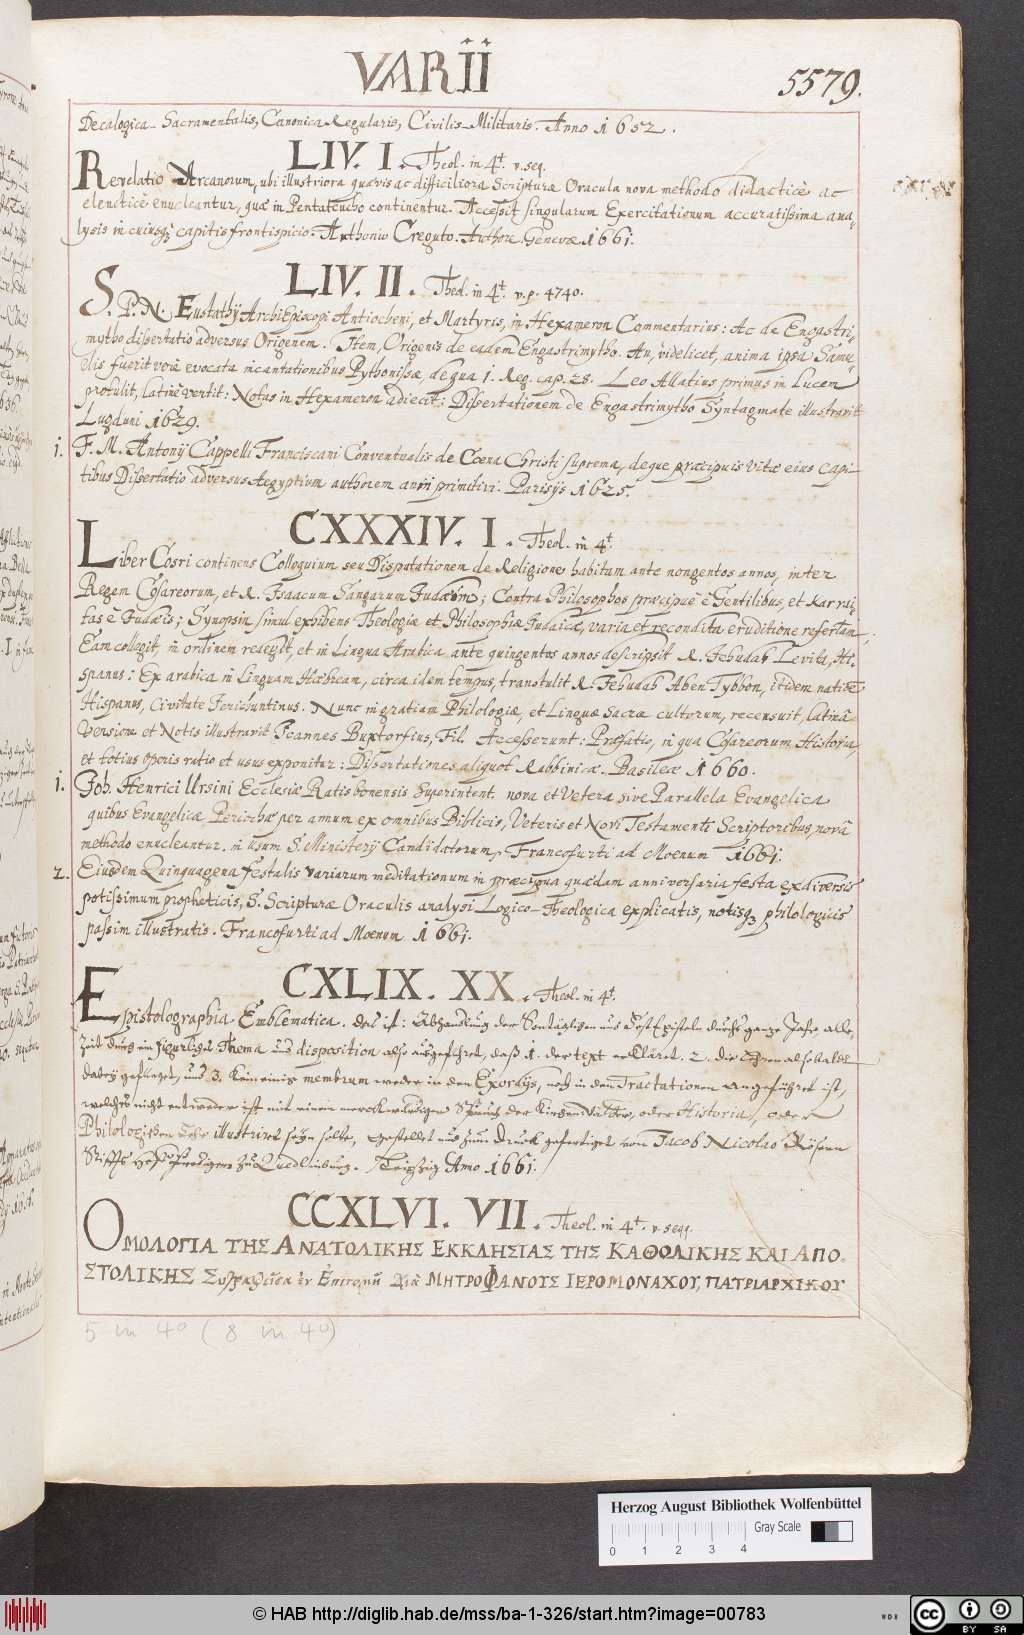 VARII
5579.
Decalogica Sacramentalis, Canonica Regularis, Civilis Militaris. Anno 1652.
LIV. I. Theol. in 4t. v. seq.
Revelatio Arcanorum, ubi illustriora quævis ac difficiliora Scripturæ Oracula nova methodo didacticè ac
elencticè enucleantur, quæ in Pentateucho continentur. Accessit singularum Exercitationum accuratissima ana-
lysis in cuiusq; capitis frontispicio. Anthonio Creguto. Authore. Genevæ 1661.
LIV. II. Theol. in 4t. v. p. 4740.
S. P. N. Eustathij Archiepiscopi Antiocheni, et Martyris, in Hexameron Commentarius: Ac de Engastri-
mytho dissertatio adversus Origenem. Item, Origenis de eadem Engastrimytho. An, videlicet, anima ipsa Samu-
elis fuerit verè evocata incantationibus Pythonissæ, de qua 1. Reg. cap. 28. Leo Allatius primus in Lucem
protulit, Latinè vertit: Notas in Hexameron adiecit: Dissertationem de Engastrimytho Syntagmate illustravit
Lugduni 1629.
1. F. M. Antonij Cappelli Franciscani Conventualis de Cœna Christi suprema, deque præcipuis vitæ eius capi-
tibus Dissertatio adversus Aegyptium authorem anni primitivi. Parisijs 1625.
CXXXIV. I. Theol. in 4t.
Liber Cosri continens Colloquium seu Disputationem de Religione, habitam ante nongentos annos, inter
Regem Cosareorum, et R. Isaacum Sangarum Judæum; Contra Philosophos præcipuè è Gentilibus, et Karrai-
tas è Judæis; Synopsin simul exhibens Theologiæ et Philosophiæ Judaicæ, varia et recondita eruditione refertam.
Eam collegit, in ordinem redegit, et in Lingua Arabica ante quingentos annos descripsit R. Jehudah Levita, Hi-
spanus: Ex arabica in Linguam Hæbræam, circa idem tempus, transtulit R. Jehudah Aben Tybbon, itidem natione
Hispanus, Civitate Jerichuntinus. Nunc in gratiam Philologiæ, et Linguæ Sacræ cultorum, recensuit, latinâ
Versione et Notis illustravit Joannes Buxtorfius, Fil. Accesserunt: Præfatio, in qua Cosareorum Historia,
et totius operis ratio et usus exponitur: Dissertationes aliquot Rabbinicæ. Basileæ 1660.
1. Joh. Henrici Ursini Ecclesiæ Ratisbonensis Superintent. nova et Vetera sive Parallela Evangelica
quibus Evangelicæ Periochæ per annum ex omnibus Biblicis, Veteris et Novi Testamenti Scriptoribus, novâ
methodo enucleantur. in usum S. Ministerij Candidatorum. Francofurti ad Moenum 1661.
2. Eiusdem Quinquagena festalis variarum meditationum in præcipua quædam anniversaria festa ex diversis
potissimum propheticis, S. Scripturæ Oraculis analysi Logico-Theologica explicatis, notisq; philologicis
passim illustratis. Francofurti ad Moenum 1661.
CXLIX. XX. Theol. in 4t.
Epistolographia Emblematica. das ist: Abhandlung der Sontäglichen und Fest Episteln durchs ganze Jahr alle-
zeit durch ein figürlich Thema und disposition also ausgeführet, daß 1. der text erkläret. 2. die Lehren alsobald
dabey gefüget, und 3. kein einig membrum weder in den Exordijs, noch in den Tractationen angeführet ist,
welches nicht entweder ist mit einem merckwürdigen Spruch der Kirchen Vätter, oder Historia, oder
Philologischen illustriret seyn solte, gestellet und zum Druck gefertiget von Jacob Nicolao Rösern
Stiffts Hoffpredigern zu Quedlinburg. Leipzig Anno 1661.
CCXLVI. VII. Theol. in 4t. v. seqq.
ΟΜΟΛΟΓΙΑ ΤΗΣ ΑΝΑΤΟΛΙΚΗΣ ΕΚΚΛΗΣΙΑΣ ΤΗΣ ΚΑΘΟΛΙΚΗΣ ΚΑΙ ΑΠΟ-
ΣΤΟΛΙΚΗΣ Συγγραφεῖσα ἐν Ἐπιτομῇ Διὰ ΜΗΤΡΟΦΑΝΟΥΣ ΙΕΡΟΜΟΝΑΧΟΥ, ΠΑΤΡΙΑΡΧΙΚΟΥ
5 in 4o (8 in 4o)
Herzog August Bibliothek Wolfenbüttel
Gray Scale
0 1 2 3 4
© HAB http://diglib.hab.de/mss/ba-1-326/start.htm?image=00783
WDB
cc BY SA